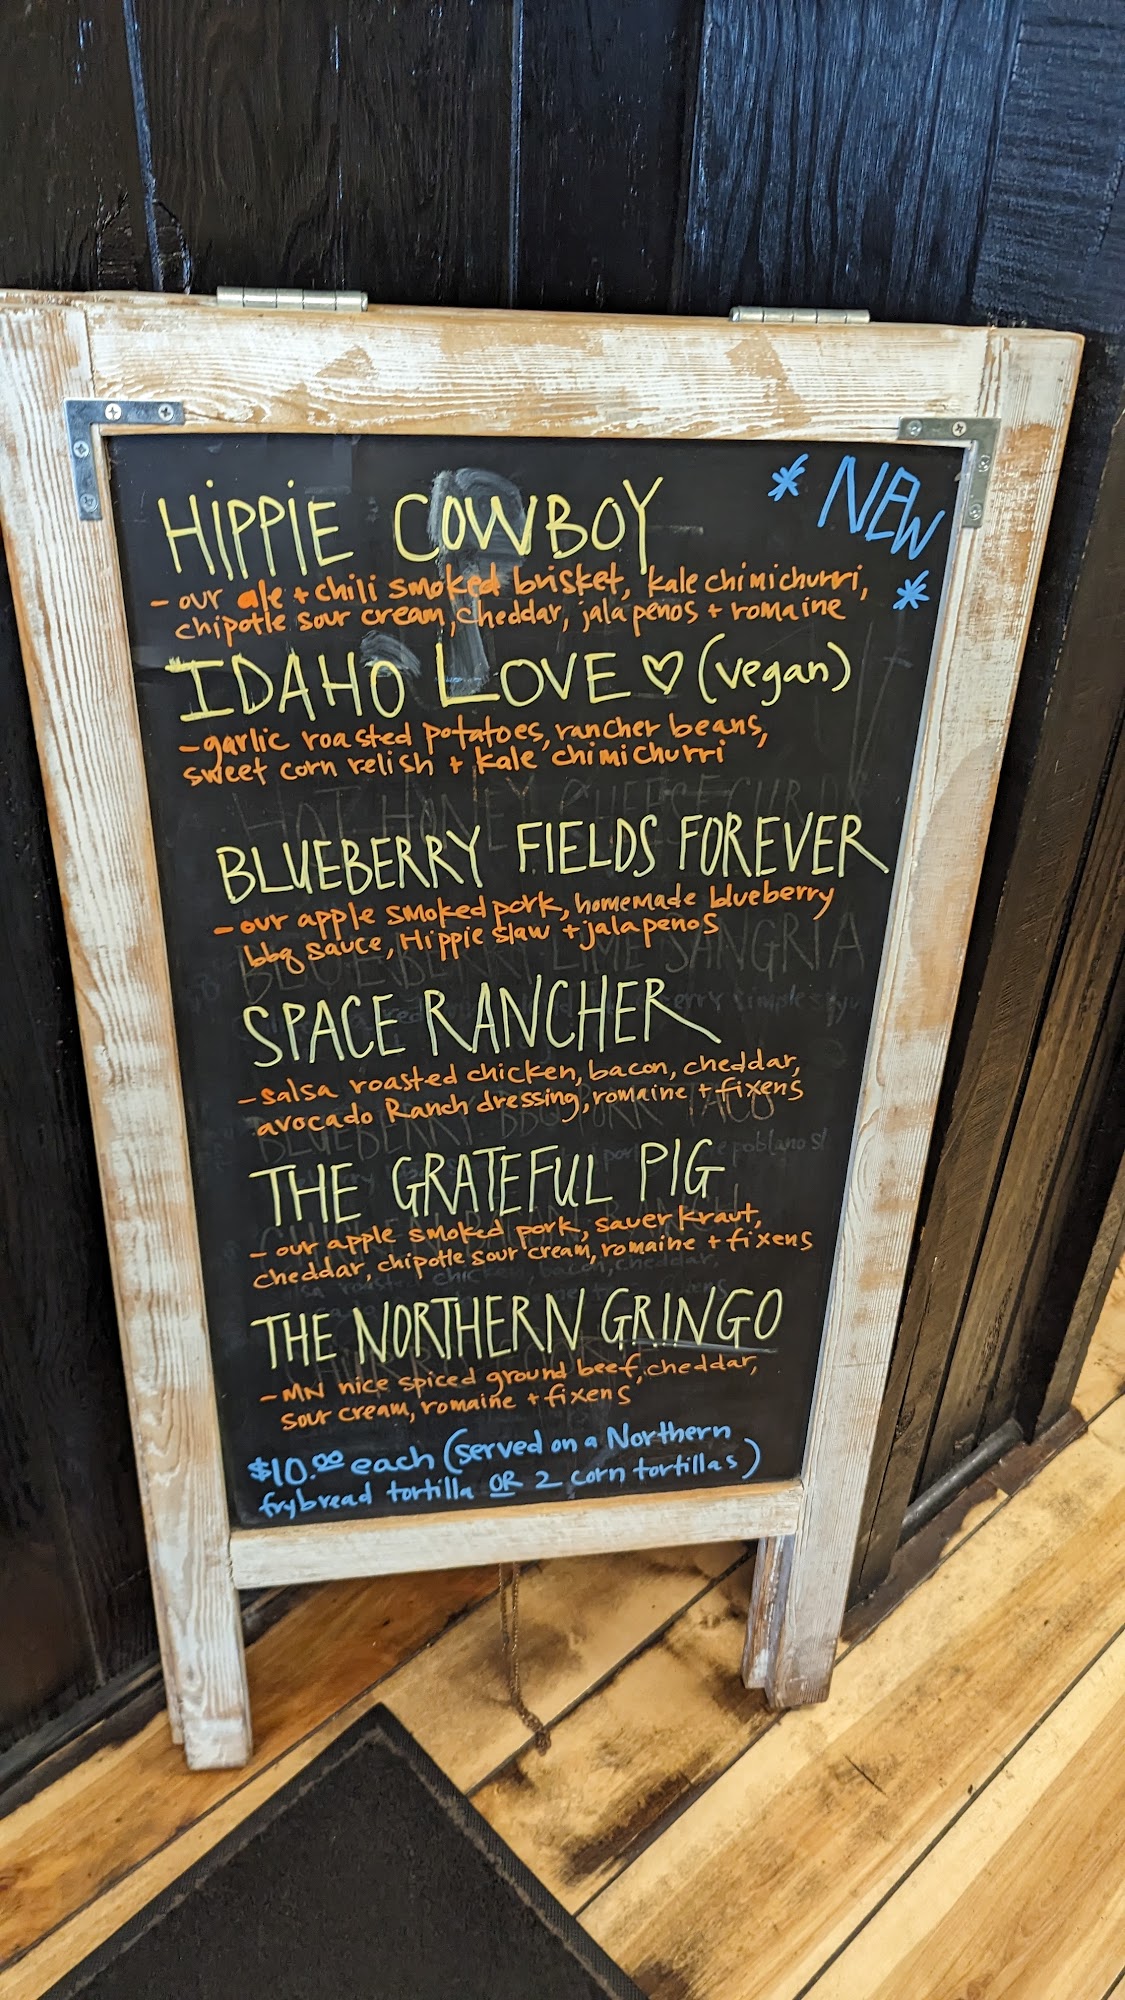 HIPPIE COWBOY
* NEW *
- our ale + chili smoked brisket, kale chimichurri,
chipotle sour cream, cheddar, jalapenos + romaine
IDAHO LOVE ♡ (vegan)
- garlic roasted potatoes, rancher beans,
sweet corn relish + kale chimichurri
BLUEBERRY FIELDS FOREVER
- our apple smoked pork, homemade blueberry
bbq sauce, Hippie slaw + jalapenos
SPACE RANCHER
- salsa roasted chicken, bacon, cheddar,
avocado Ranch dressing, romaine + fixens
THE GRATEFUL PIG
- our apple smoked pork, sauerkraut,
cheddar, chipotle sour cream, romaine + fixens
THE NORTHERN GRINGO
- MN nice spiced ground beef, cheddar,
sour cream, romaine + fixens
$10.00 each (served on a Northern
frybread tortilla OR 2 corn tortillas)